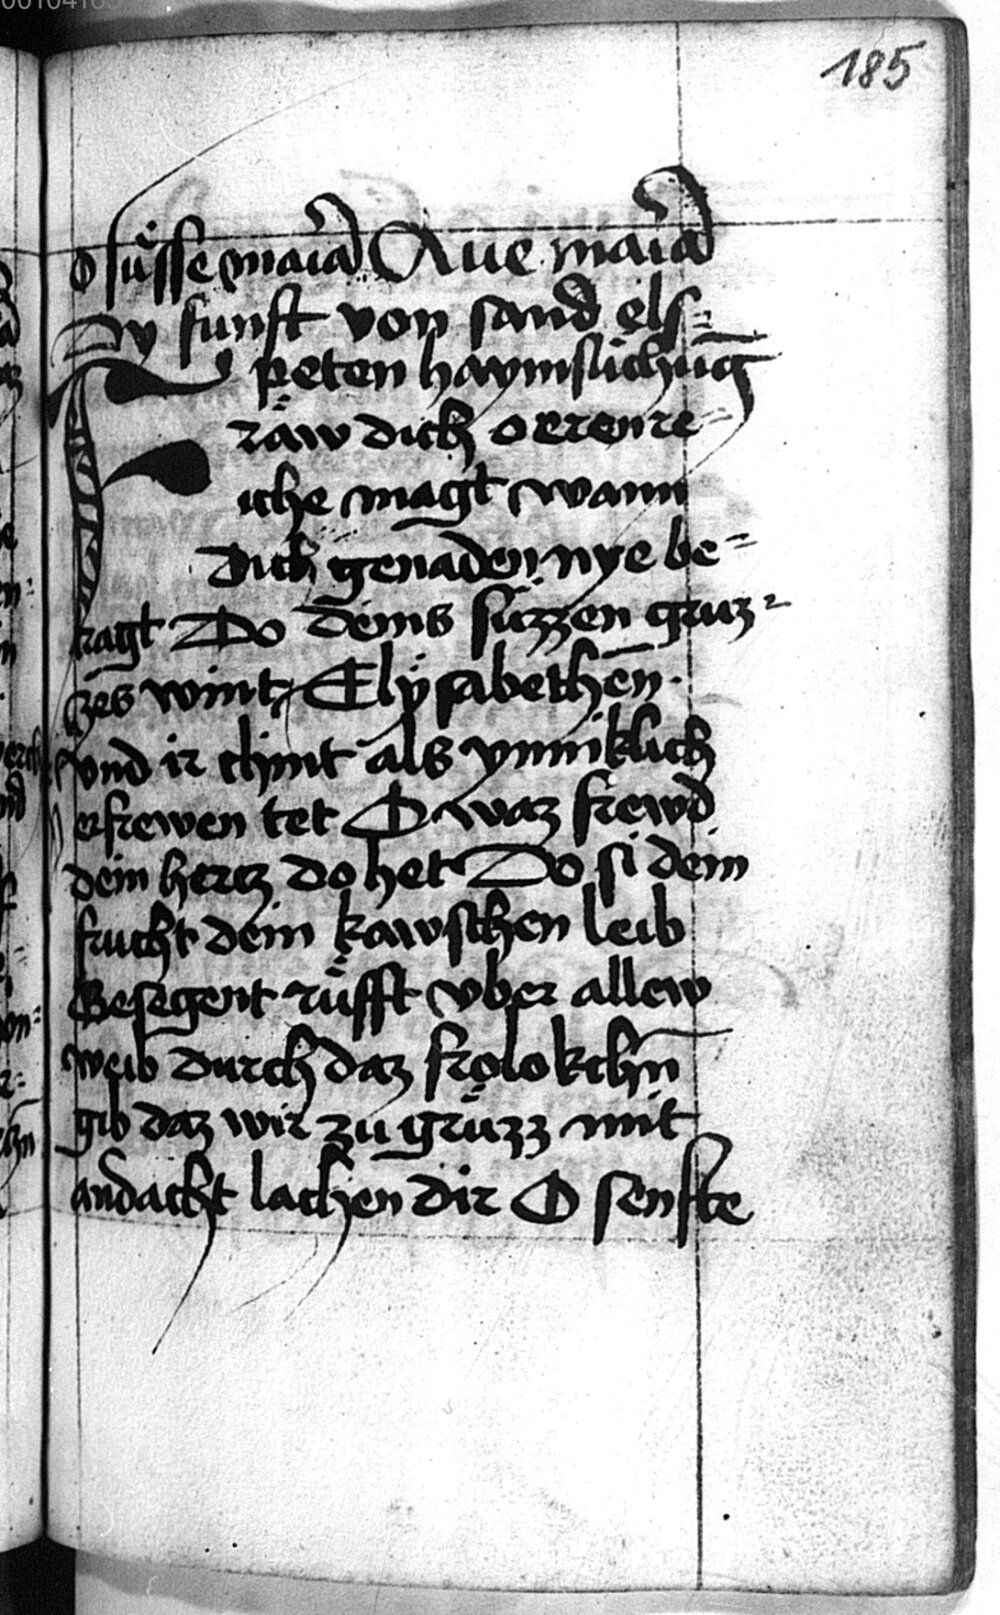 185
O süsse maria Aue maria
Dy funft von sand els=
peten haymsuchūg
Fräw dich o erenre=
iche magt wann
Dich genaden nye be=
tragt Do deins süzzen gruz=
zes wint Elysabethen
vnd ir chint als ynniklich
erfrewen tet O waz frewd
dein hercz do het Do si dein
frucht dein kawschen leib
Gesegent rüfft vber allew
weib durch daz frolokchn̄
gib daz wir zu grüzz mit
andacht lachen dir O senfte